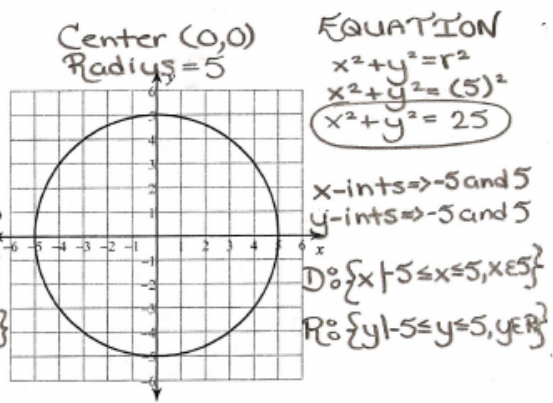 Center (0,0)
Radius = 5
EQUATION
x² + y² = r²
x² + y² = (5)²
x² + y² = 25
x-ints => -5 and 5
y-ints => -5 and 5
D: {x|-5≤x≤5, xε5}
R: {y|-5≤y≤5, yεR}
y
6
5
4
3
2
1
-6 -5 -4 -3 -2 -1 1 2 3 4 5 6 x
-1
-2
-3
-4
-5
-6
}